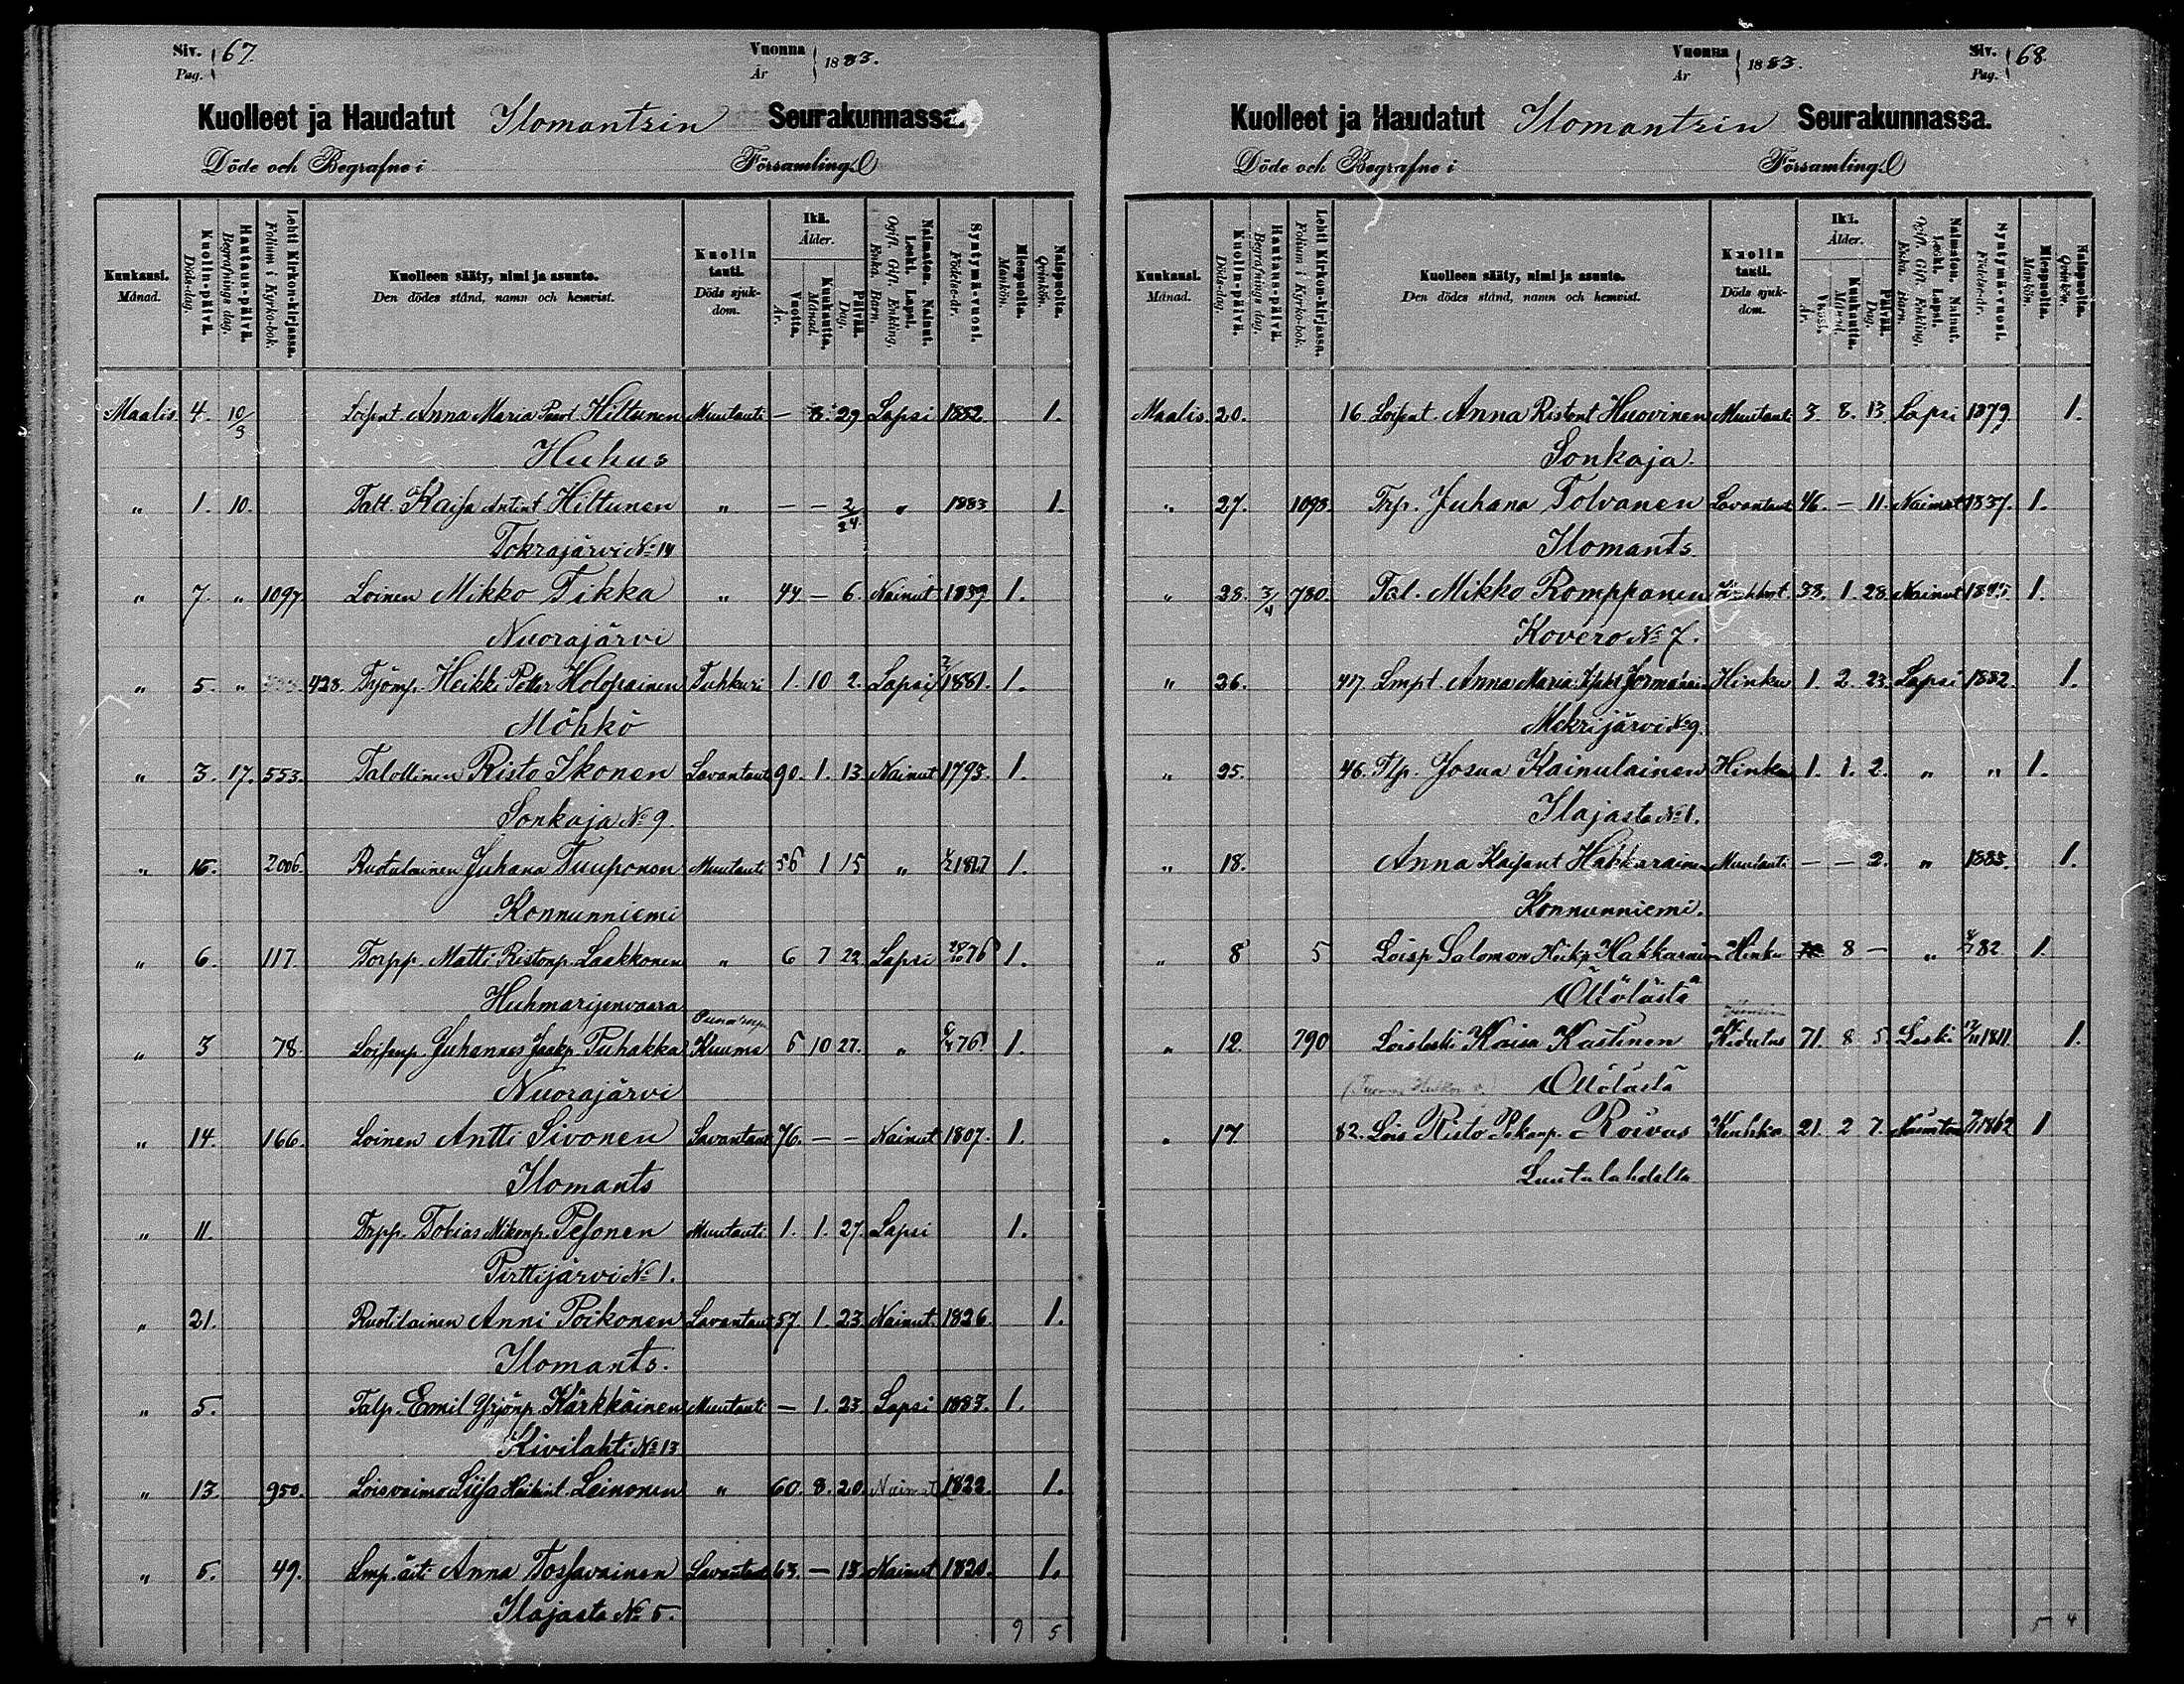 Siv. 67.
Pag.
Vuonna 1883.
År
Kuolleet ja Haudatut Ilomantsin Seurakunnassa.
Döde och Begrafne i Församling.
Kuukausi. Månad.
Kuolin-päivä. Döds-dag.
Hautaus-päivä. Begrafnings dag.
Lehti Kirkon-kirjassa. Folium i Kyrko-bok.
Kuolleen sääty, nimi ja asunto.
Den dödes stånd, namn och hemvist.
Kuolin tauti. Döds sjukdom.
Ikä. Ålder.
Vuotta. År.
Kuukautta. Månad.
Päivää. Dag.
Naimaton. Nainut. Leski. Lapsi.
Ogift. Gift. Enkling, Enka. Barn.
Syntymä-vuosi. Födelse-år.
Miespuolta. Mankön.
Naispuolta. Qvinkön.
Maalis. 4. 10/3 Loisent. Anna Maria Hiltunen Muutauti — 8 29 Lapsi 1882. 1.
Huhus
" 1. 10. Talt. Kaisa Antint Hiltunen " — — 2/24 " 1883 1.
Tokrajärvi No 14
" 7. " 1097 Loinen Mikko Tikka " 44. — 6. Nainut 1839 1.
Nuorajärvi
" 5. " 428. Heikki Petter Holopainen Tuhkuri 1. 10 2. Lapsi 1881. 1.
Möhkö
" 3. 17. 553. Talollinen Risto Ikonen Lavantaut 90. 1. 13. Nainut 1793. 1.
Sonkaja No 9.
" 15. 2006 Ruotulainen Juhana Tuuponen Muutauti 56 1 15 " 1827 1.
Konnunniemi
" 6. 117. Torpp. Matti Ristonp. Laakkonen " 6 7 22 Lapsi 76 1.
Huhmarijenvaara
" 3 78. Loisenp. Juhannes Jaakp. Puhakka Kuume 6 10 27. " 76 1.
Nuorajärvi
" 14. 166. Loinen Antti Sivonen Lavantaut 76. — — Nainut 1807. 1.
Ilomants
" 11. Trpp. Tobias Mikonp. Pesonen Muutauti 1. 1. 27. Lapsi 1.
Pirttijärvi No 1.
" 21. Ruotilainen Anni Poikonen Lavantaut 57. 1. 23. Nainut. 1826. 1.
Ilomants.
" 5. Talp. Emil Yrjönp. Kärkkäinen Muutauti — 1. 23. Lapsi 1883. 1.
Kivilahti No 13
" 13. 950. Loisvaimo Liisa Heikint. Leinonen " 60. 8. 20. Nainut 1822. 1.
" 5. 49. Lmp. äiti Anna Tossavainen Lavantaut 63. — 13. Nainut 1820. 1.
Ilajasta No 5.
9 5
Vuonna 1883.
År
Siv. 68.
Pag.
Kuolleet ja Haudatut Ilomantsin Seurakunnassa.
Döde och Begrafne i Församling.
Kuukausi. Månad.
Kuolin-päivä. Döds-dag.
Hautaus-päivä. Begrafnings dag.
Lehti Kirkon-kirjassa. Folium i Kyrko-bok.
Kuolleen sääty, nimi ja asunto.
Den dödes stånd, namn och hemvist.
Kuolin tauti. Döds sjukdom.
Ikä. Ålder.
Vuosi. År.
Kuukautta. Månad.
Päivää. Dag.
Naimaton. Nainut. Leski. Lapsi.
Ogift. Gift. Enkling, Enka. Barn.
Syntymä-vuosi. Födelse-år.
Miespuolta. Mankön.
Naispuolta. Qvinkön.
Maalis. 20. 16. Loisent. Anna Ristont Huovinen Muutauti 3. 8. 13. Lapsi 1879. 1.
Sonkaja.
" 27. 1098. Trp. Juhana Tolvanen Lavantaut 46. — 11. Nainut 1837. 1.
Ilomants.
" 28. 3/4 780. Tal. Mikko Romppanen 38. 1. 28. Nainut 1. 
Kovero No 7.
" 26. 417 Lmpt. Anna Maria Hinku 1. 2. 23. Lapsi 1882. 1.
Mekrijärvi No 9.
" 25. 46. Tlp. Josua Kainulainen Hinku 1. 1. 2. " " 1.
Ilajasta No 1.
" 18. Anna Kaisant Hakkarainen Muutauti — — 2. " 1883. 1.
Konnunniemi.
" 8 5 Loisp Salomon Heikp. Hakkarainen Hinku 8 — " 82. 1.
Öllölästä
" 12. 790 Loisleski Kaisa Kastinen 71. 8 5 Leski 1811. 1.
Öllölästä
" 17. 82. Lois Risto Pekanp. Roivas Keuhko 21. 2 7. Naimaton 1862 1
Luutalahdelta
5 4